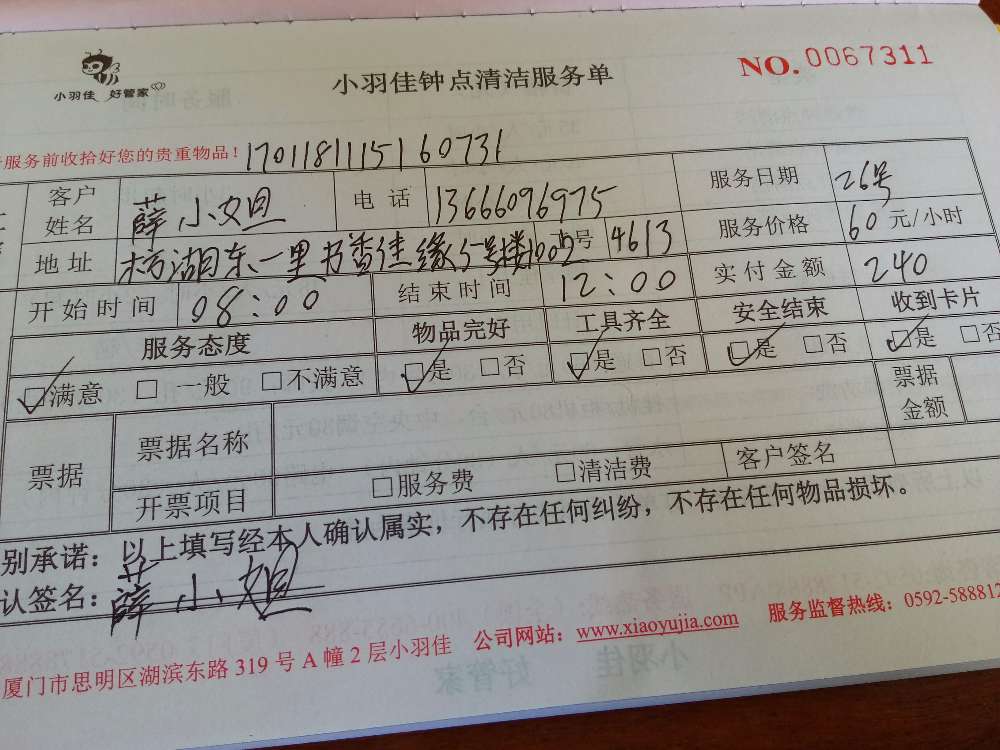 小羽佳 好管家
小羽佳钟点清洁服务单
NO. 0067311
服务前收拾好您的贵重物品！ 1701181115160731
客户姓名 薛小妲 电话 13666096975 服务日期 26号
地址 湖东一里书香佳缘5号楼1002 号 4613 服务价格 60元/小时
开始时间 08:00 结束时间 12:00 实付金额 240
服务态度 物品完好 工具齐全 安全结束 收到卡片
☑满意 □一般 □不满意 ☑是 □否 ☑是 □否 ☑是 □否 ☑是 □否
票据 票据名称 票据金额
开票项目 □服务费 □清洁费 客户签名
别承诺：以上填写经本人确认属实，不存在任何纠纷，不存在任何物品损坏。
认签名：薛小妲
厦门市思明区湖滨东路319号A幢2层小羽佳 公司网站：www.xiaoyujia.com 服务监督热线：0592-588812